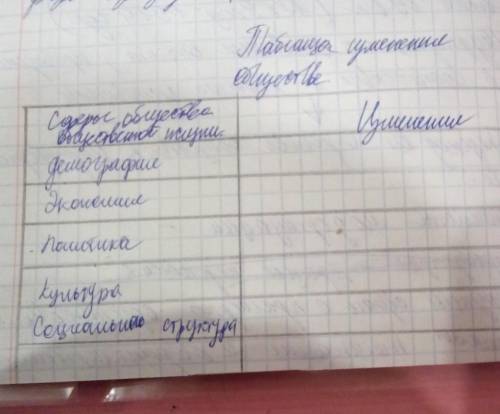 Таблица изменение
обществе
Сферы общества
общественной жизни
Изменения
демография
Экономика
Политика
Культура
Социальная структура